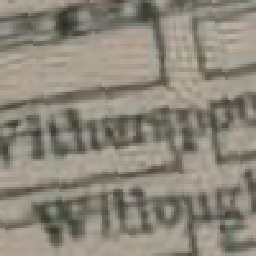 Witherspoo
Willough